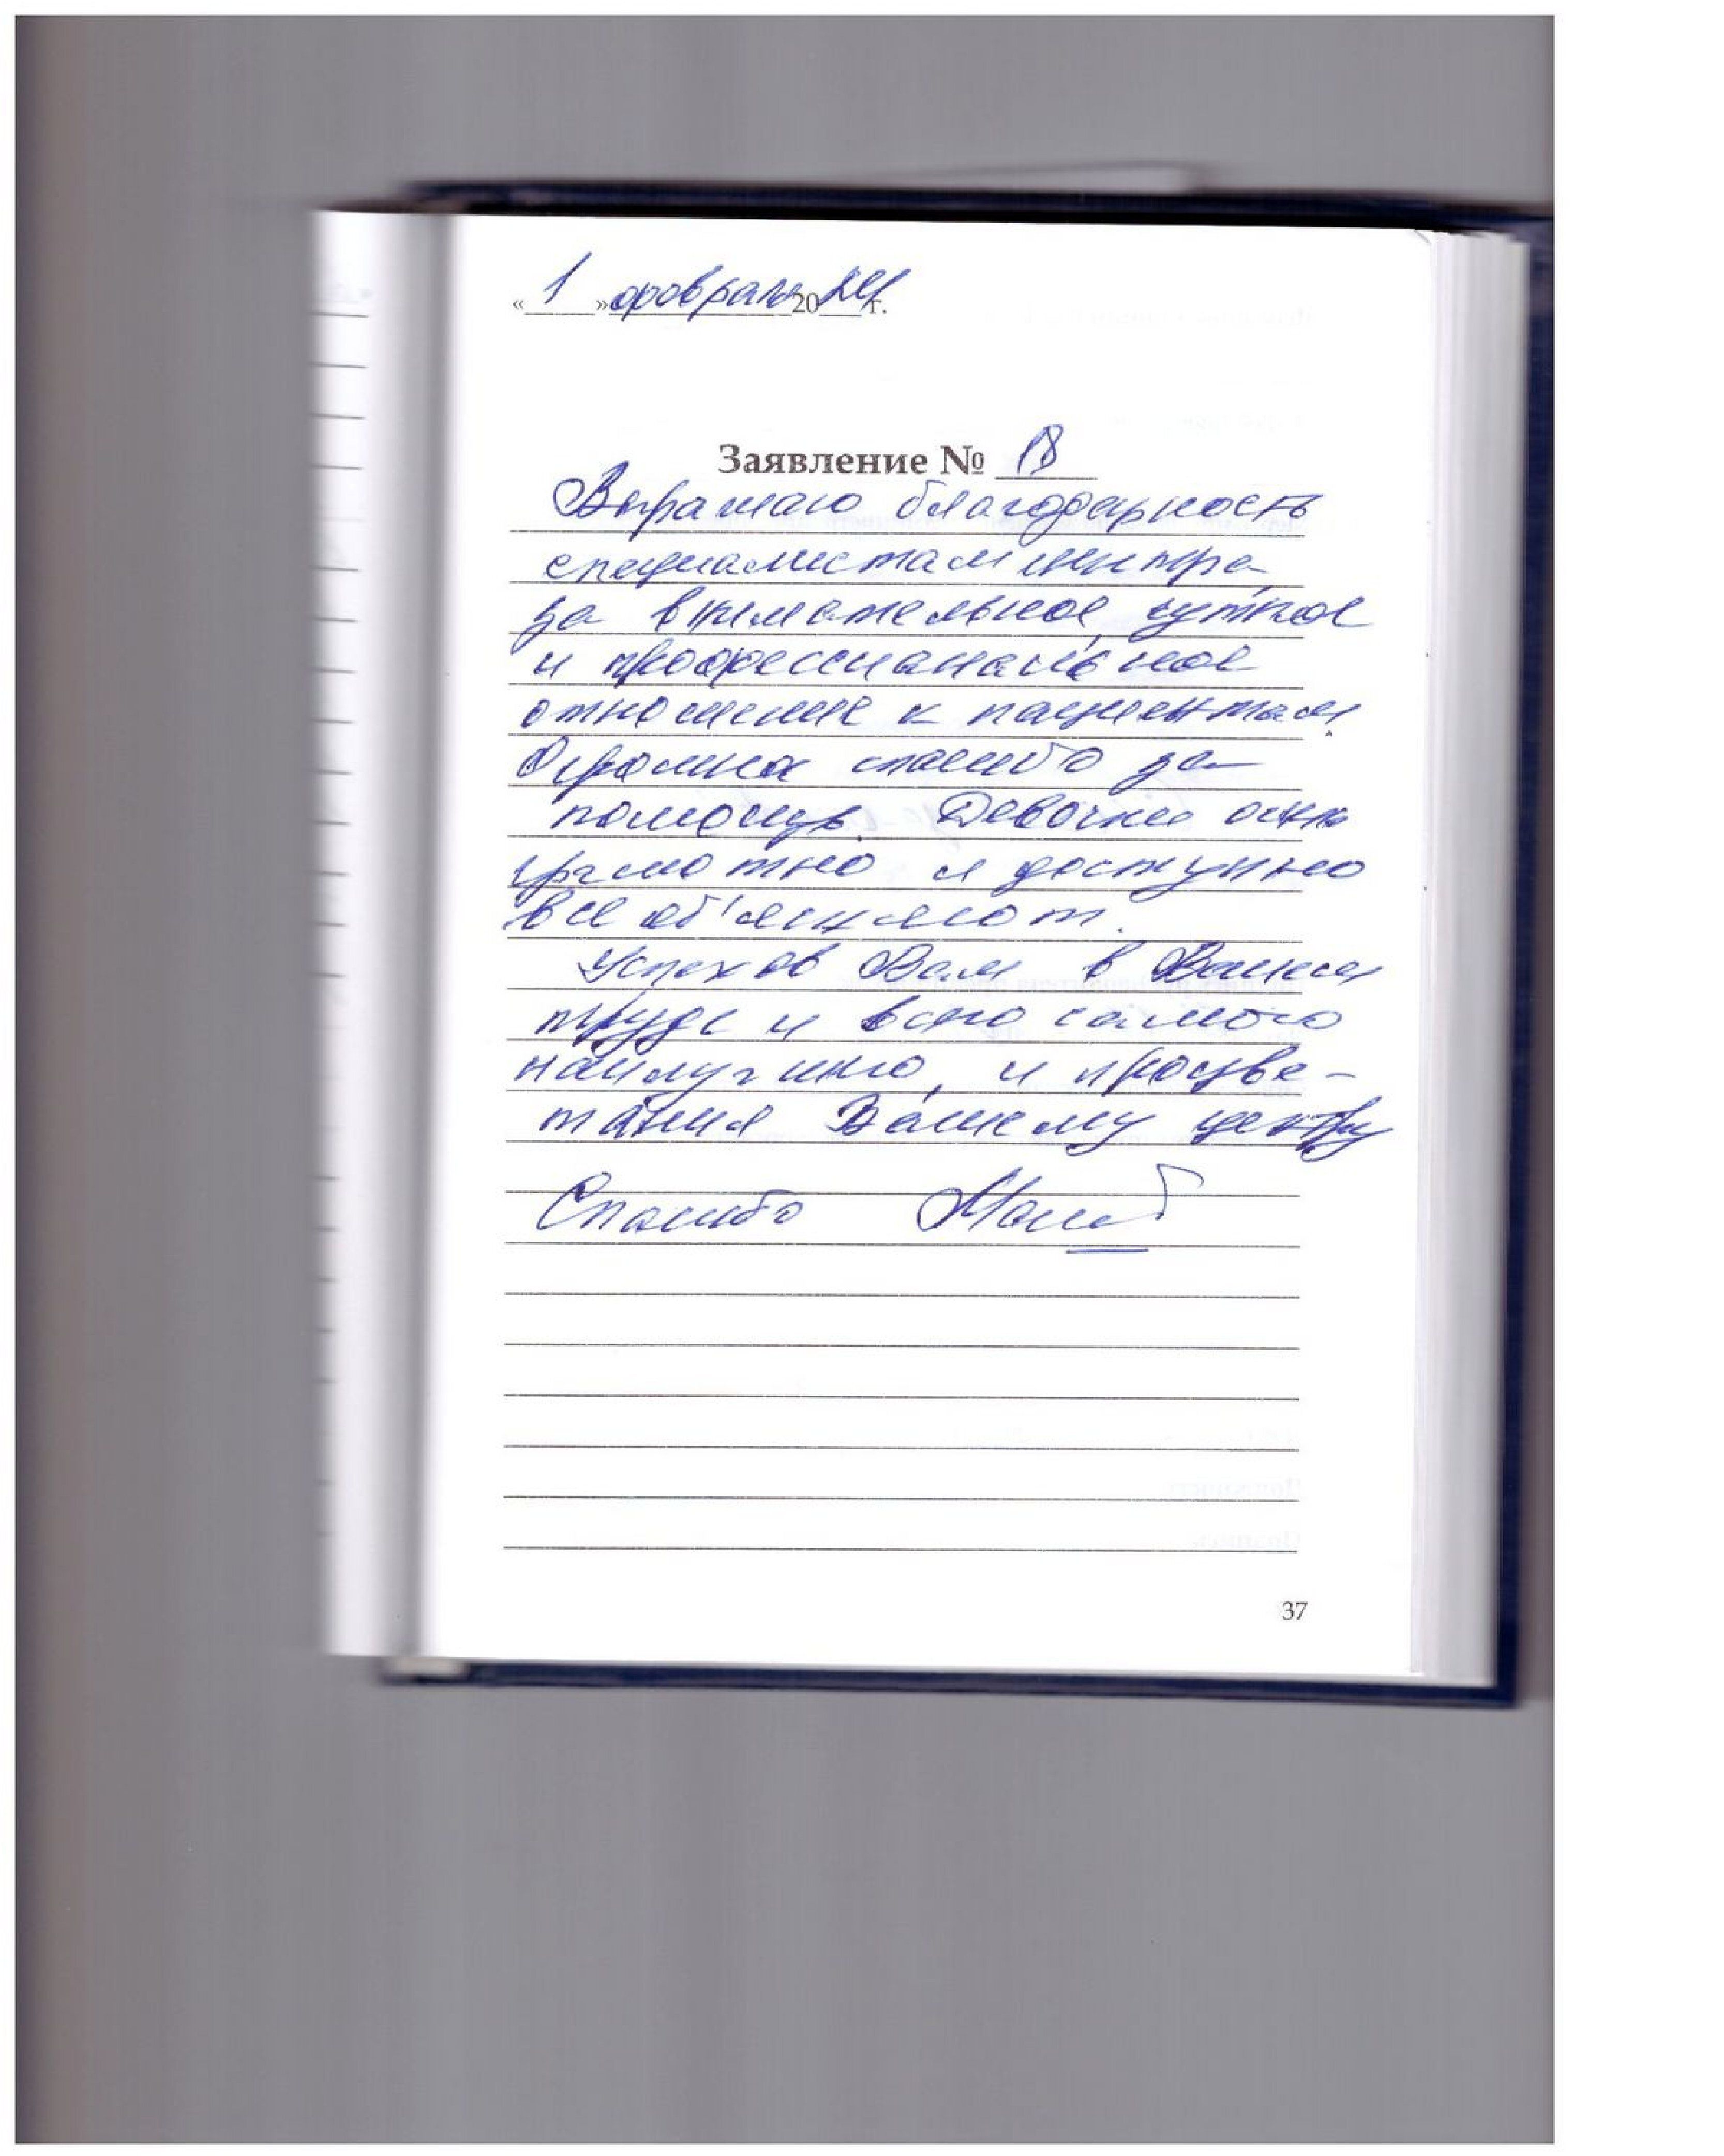 « 1 » февраля 2024 г.
Заявление № 18
Выражаю благодарность
специалистам центра
за внимательное, чуткое
и профессиональное
отношение к пациентам.
Огромное спасибо за
помощь. Девочки очень
грамотно и доступно
все об'ясняют.
Успехов Вам в Вашем
труде и всего самого
наилучшего, и процве-
тания Вашему центру
Спасибо
37